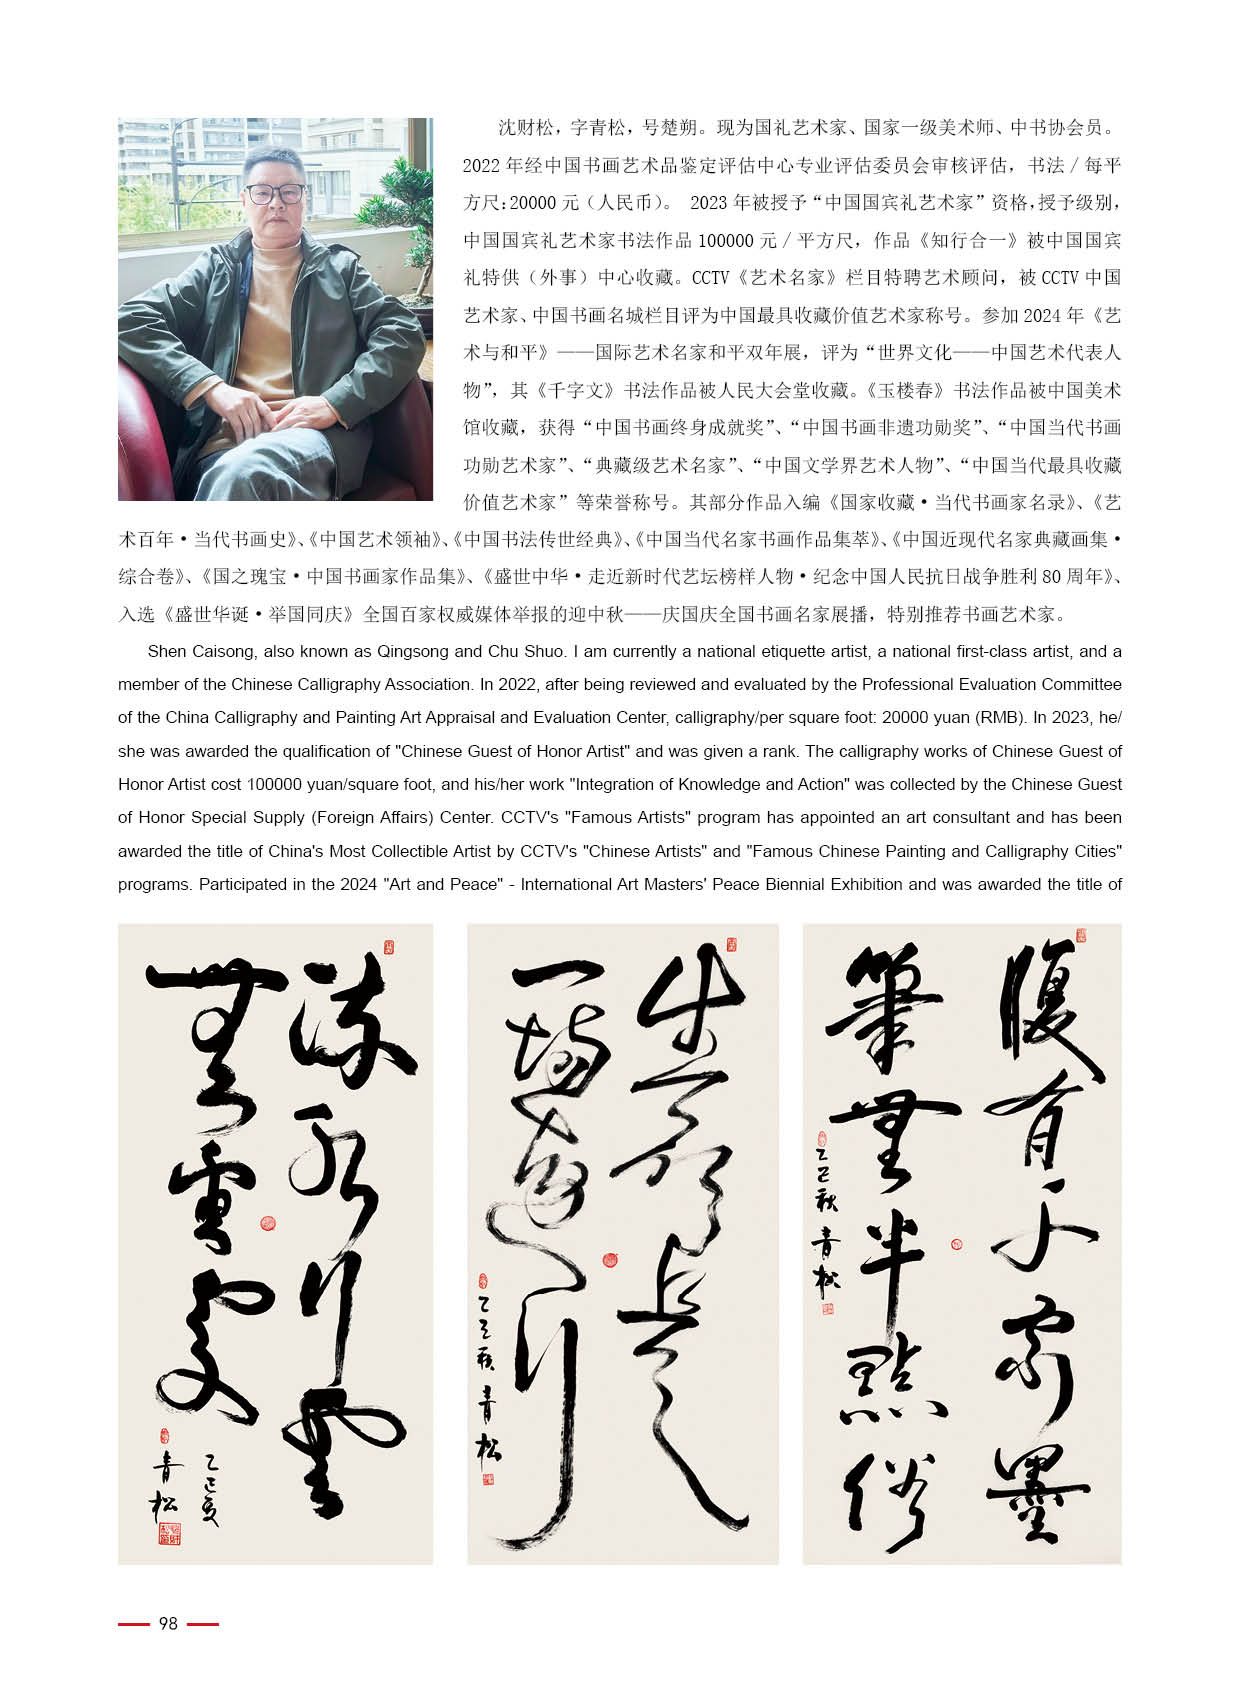 沈财松，字青松，号楚朔。现为国礼艺术家、国家一级美术师、中书协会员。
2022 年经中国书画艺术品鉴定评估中心专业评估委员会审核评估，书法 / 每平
方尺：20000 元（人民币）。 2023 年被授予“中国国宾礼艺术家”资格，授予级别，
中国国宾礼艺术家书法作品 100000 元 / 平方尺，作品《知行合一》被中国国宾
礼特供（外事）中心收藏。CCTV《艺术名家》栏目特聘艺术顾问，被 CCTV 中国
艺术家、中国书画名城栏目评为中国最具收藏价值艺术家称号。参加 2024 年《艺
术与和平》——国际艺术名家和平双年展，评为“世界文化——中国艺术代表人
物”，其《千字文》书法作品被人民大会堂收藏。《玉楼春》书法作品被中国美术
馆收藏，获得“中国书画终身成就奖”、“中国书画非遗功勋奖”、“中国当代书画
功勋艺术家”、“典藏级艺术名家”、“中国文学界艺术人物”、“中国当代最具收藏
价值艺术家”等荣誉称号。其部分作品入编《国家收藏·当代书画家名录》、《艺
术百年·当代书画史》、《中国艺术领袖》、《中国书法传世经典》、《中国当代名家书画作品集萃》、《中国近现代名家典藏画集·
综合卷》、《国之瑰宝·中国书画家作品集》、《盛世中华·走近新时代艺坛榜样人物·纪念中国人民抗日战争胜利 80 周年》、
入选《盛世华诞·举国同庆》全国百家权威媒体举报的迎中秋——庆国庆全国书画名家展播，特别推荐书画艺术家。
Shen Caisong, also known as Qingsong and Chu Shuo. I am currently a national etiquette artist, a national first-class artist, and a
member of the Chinese Calligraphy Association. In 2022, after being reviewed and evaluated by the Professional Evaluation Committee
of the China Calligraphy and Painting Art Appraisal and Evaluation Center, calligraphy/per square foot: 20000 yuan (RMB). In 2023, he/
she was awarded the qualification of "Chinese Guest of Honor Artist" and was given a rank. The calligraphy works of Chinese Guest of
Honor Artist cost 100000 yuan/square foot, and his/her work "Integration of Knowledge and Action" was collected by the Chinese Guest
of Honor Special Supply (Foreign Affairs) Center. CCTV's "Famous Artists" program has appointed an art consultant and has been
awarded the title of China's Most Collectible Artist by CCTV's "Chinese Artists" and "Famous Chinese Painting and Calligraphy Cities"
programs. Participated in the 2024 "Art and Peace" - International Art Masters' Peace Biennial Exhibition and was awarded the title of
無重
青松
生命
一場
行
乙巳秋 青松
腹有千家墨
筆無半點俗
乙巳秋 青松
98